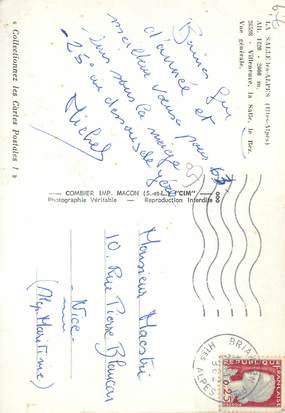 LA SALLE-les-ALPES (Htes-Alpes)
Alt. 1420 - 2600 m.
Villeneuve, la Salle, le Bez.
Vue générale.
Bonne fin
d'année et
meilleurs vœux pour 63
Suis sous la neige
-25° au dessous de zéro
Michel
« Collectionnez les Cartes Postales ! »
COMBIER IMP. MACON (S.-et-L.) "CIM"
Photographie Véritable - Reproduction Interdite
Monsieur Maestri
10, Rue Pierre
Nice
(Alp. Maritime)
BRIAN
Htes ALPES
REPUBLIQUE FRANÇAISE
0,25